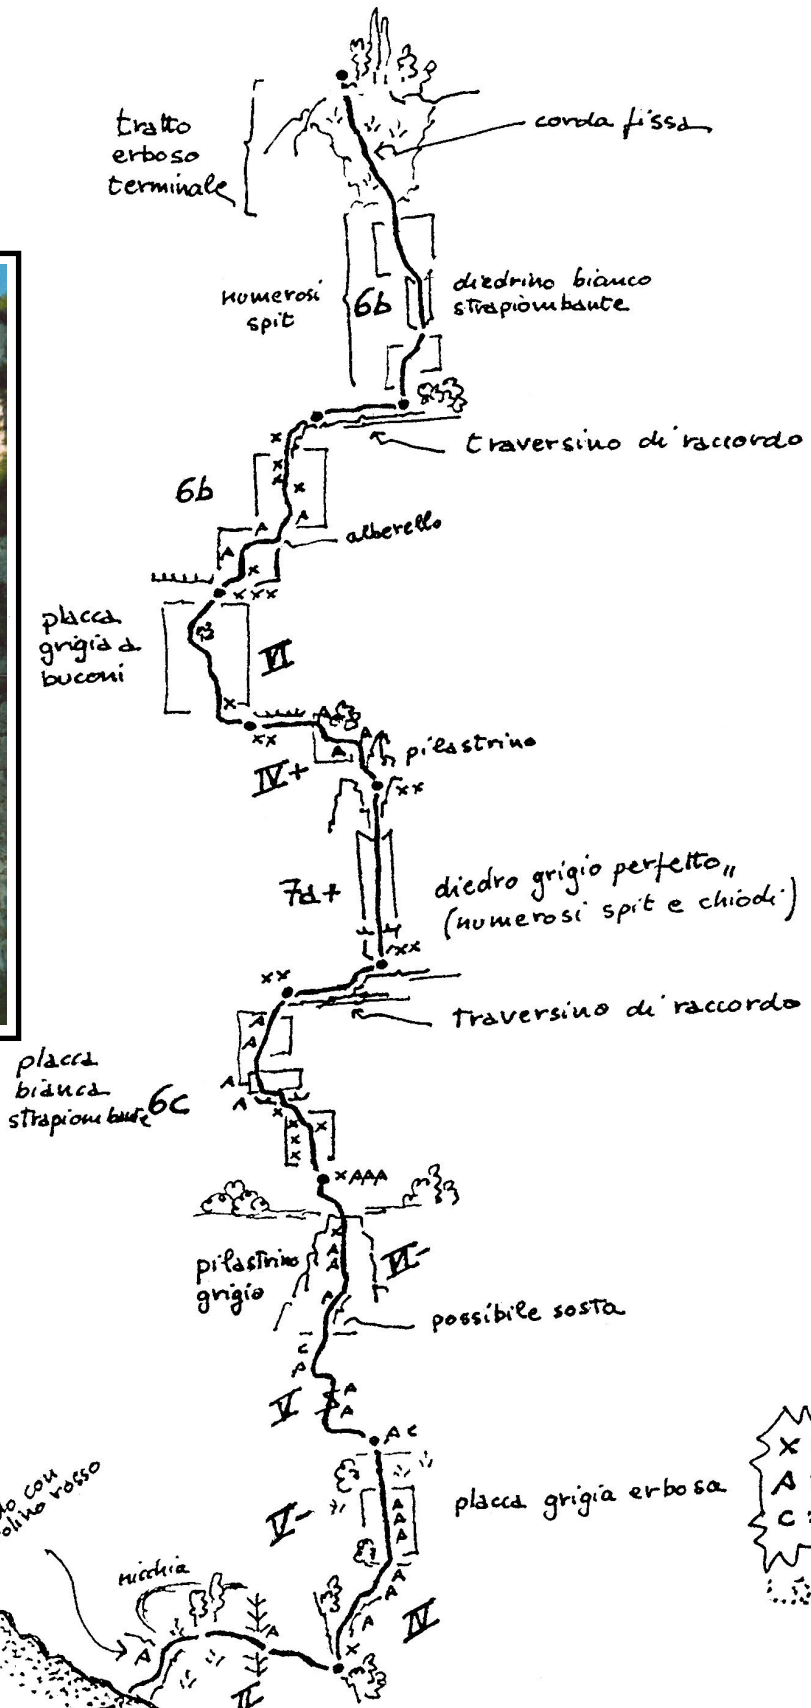 tratto
erboso
terminale
corda fissa
numerosi
spit
6b
diedrino bianco
strapiombante
x
traversino di raccordo
x
x
x
6b
A
A
alberello
A
x
xxx
placca
grigia a
buconi
VI
x
A
xx
A
A
pilastrino
IV+
xx
7a+
diedro grigio perfetto
(numerosi spit e chiodi)
xx
xx
traversino di raccordo
A
A
placca
bianca
strapiombante
6c
A
A
x
x
x
x
x
xAAA
x
A
A
VI-
pilastrino
grigio
A
possibile sosta
C
A
V
A
A
AC
placca grigia erbosa
V-
A
A
A
X
A
C =
con
olino rosso
nicchia
A
A
A
A
A
IV
x
II